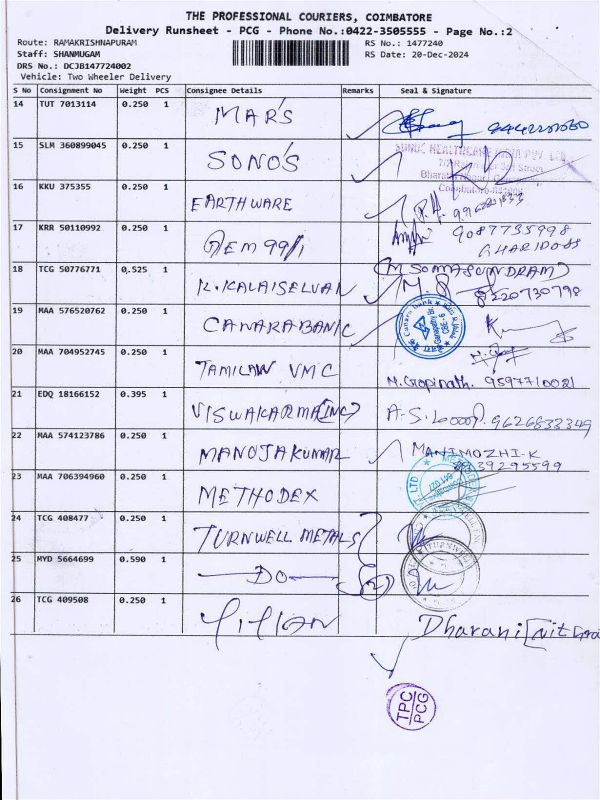 THE PROFESSIONAL COURIERS, COIMBATORE
Delivery Runsheet - PCG - Phone No.:0422-3505555 - Page No.:2
Route: RAMAKRISHNAPURAM RS No.: 1477240
Staff: SHANMUGAM RS Date: 20-Dec-2024
DRS No.: DCJB147724002
Vehicle: Two Wheeler Delivery
S No Consignment No Weight PCS Consignee Details Remarks Seal & Signature
14 TUT 7013114 0.250 1 MAR'S
15 SLM 360899045 0.250 1 SONO'S
SONIC HEALTHCARE INDIA PVT LTD
Street
Coimbatore
16 KKU 375355 0.250 1 EARTHWARE
17 KRR 50110992 0.250 1 GEM 99/1 9087735998
18 TCG 50776771 0,525 1 K.KALAISELVAN (M SOMASUNDRAM)
8220730798
19 MAA 576520762 0.250 1 CANARABANK
20 MAA 704952745 0.250 1 TAMILAN VMC
M. Gopinath. 9597710021
21 EDQ 18166152 0.395 1 VISWAKARMA(INC) 9626833349
22 MAA 574123786 0.250 1 MANOJAKUMAR MANIMOZHI-K
39295599
23 MAA 706394960 0.250 1 METHODEX
24 TCG 408477 0.250 1 TURNWELL METALS
25 MYD 5664699 0.590 1 DO (2)
TURNWELL
26 TCG 409508 0.250 1 Dharani
TPC
PCG